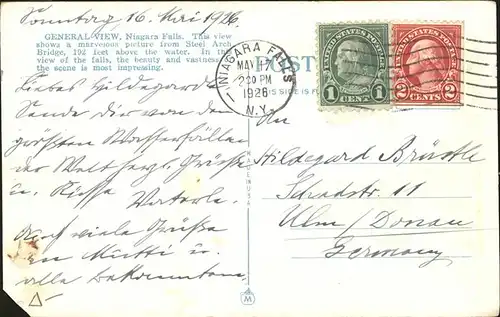 Sonntag 16. Mai 1926
GENERAL VIEW, Niagara Falls. This view
shows a marvelous picture from Steel Arch
Bridge, 192 feet above the water. In this
view of the falls, the beauty and vastness of
the scene is most impressing.
Liebes Hildegardle
Sende dir von den
größten Wasserfällen
der Welt herzl. Grüße
u. Küsse Vaterle.
viele Grüße
an Mutti u.
alle Bekannten.
POST
THIS SIDE IS F
NIAGARA FALLS
MAY 17
2 30 PM
1926
N.Y.
UNITED STATES POSTAGE
1 CENT 1
UNITED STATES POSTAGE
2 CENTS 2
MADE IN U.S.A.
An
Hildegard Brüstle
11
Ulm / Donau
Germany